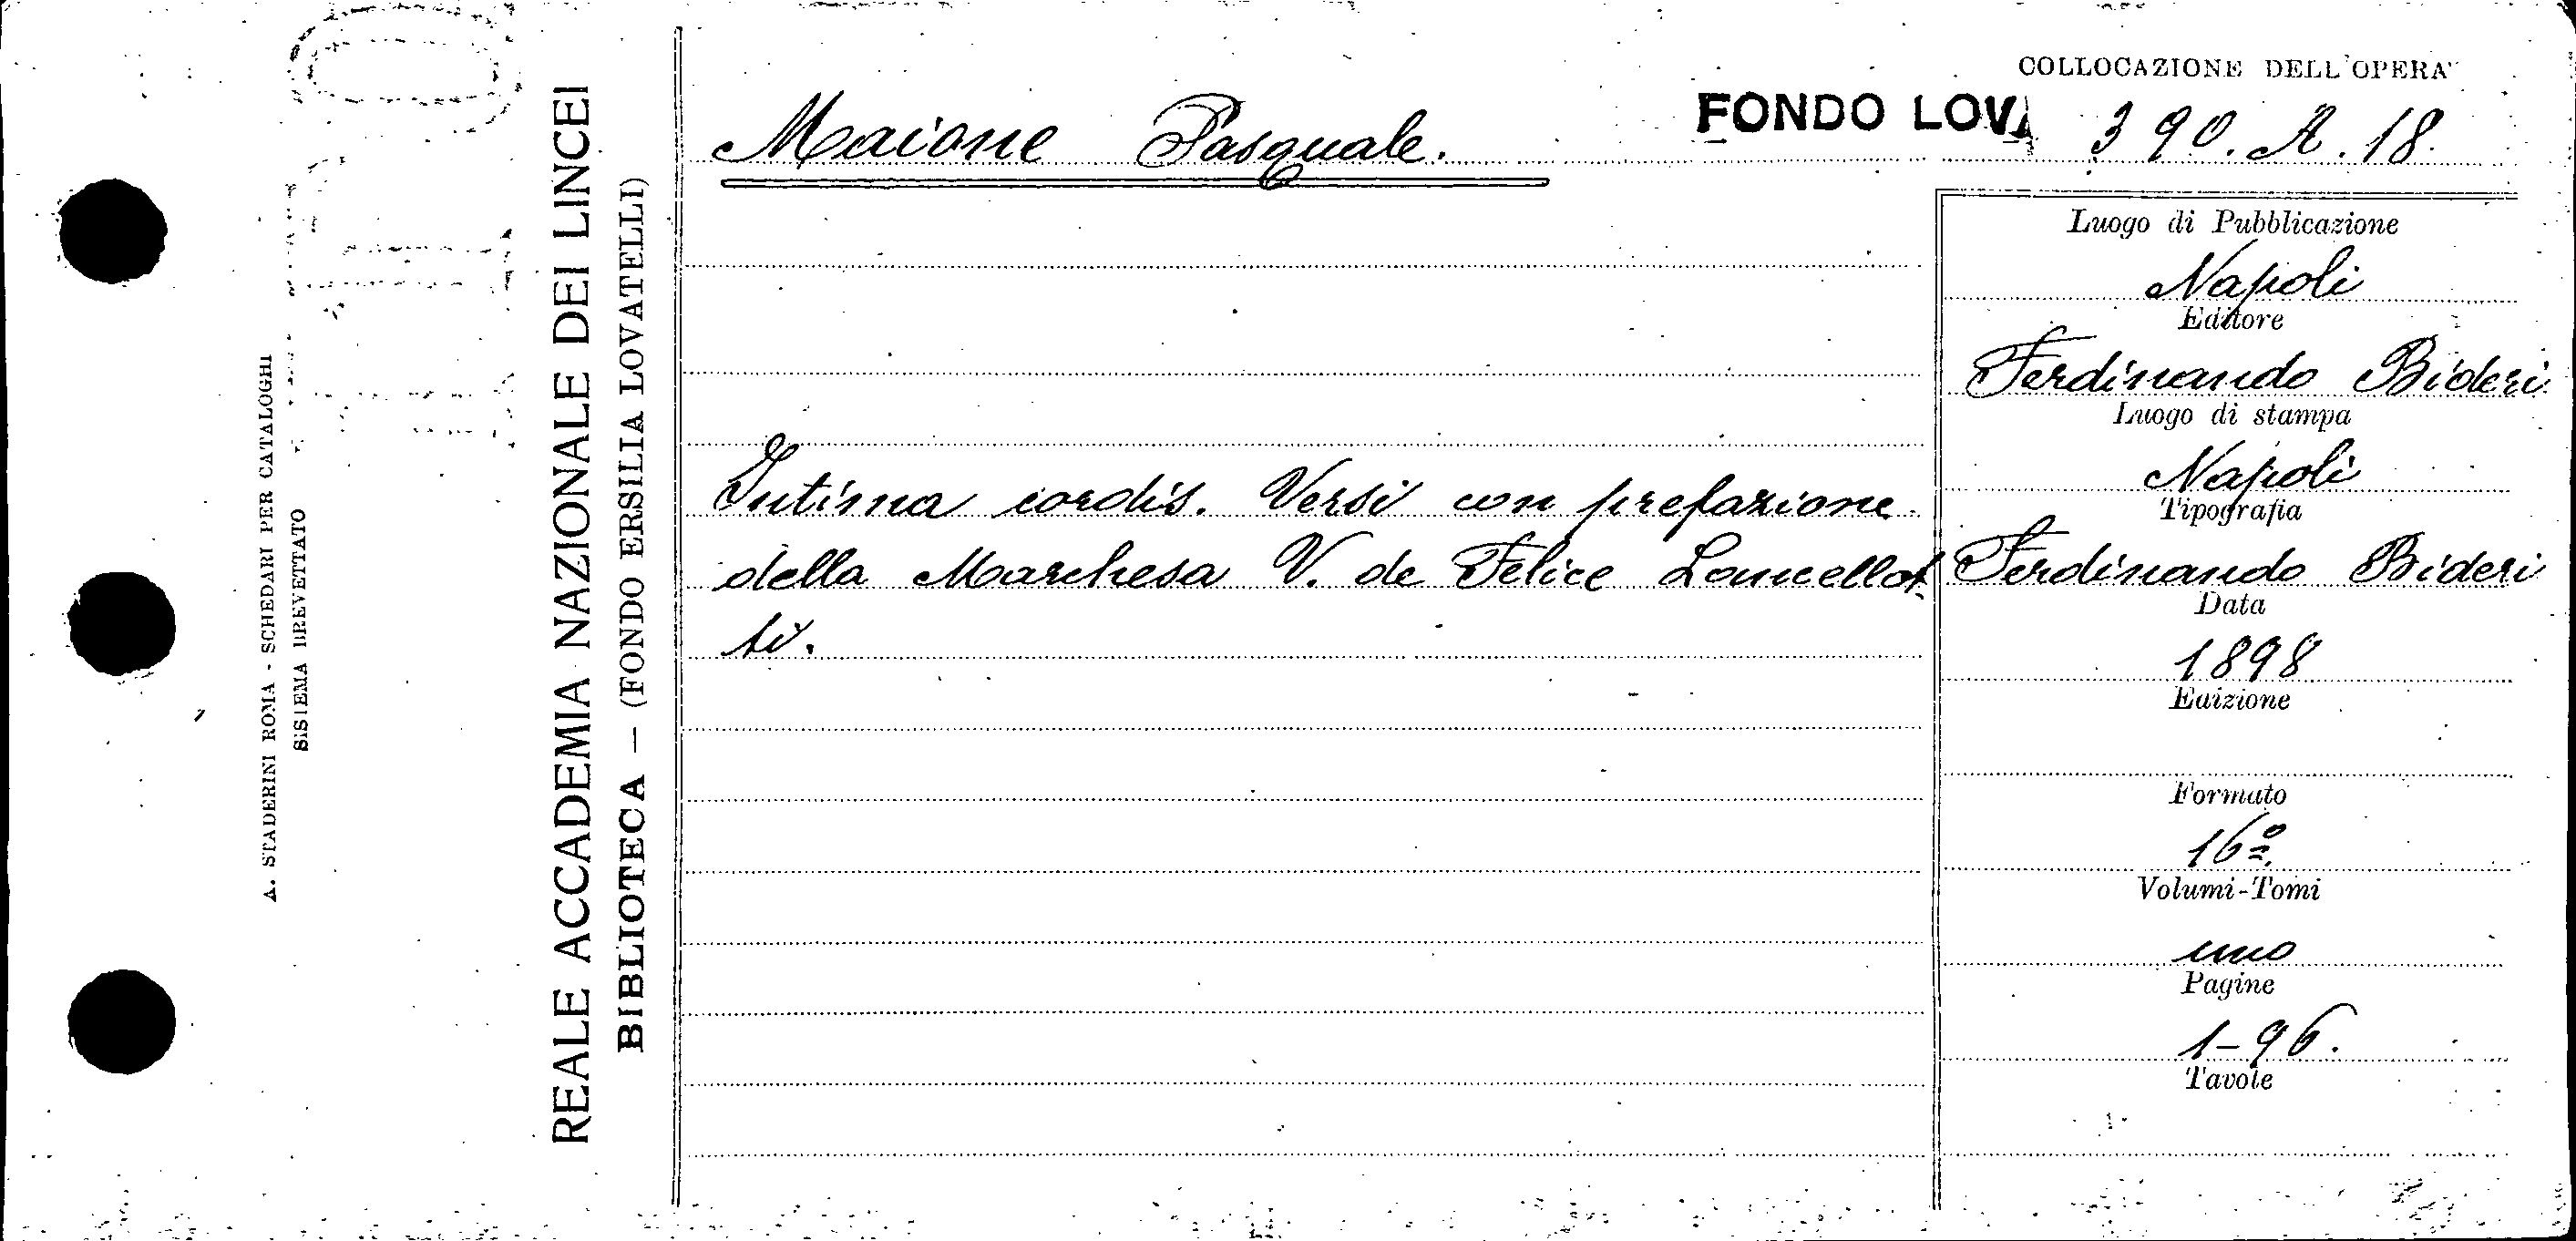 A. STADERINI ROMA - SCHEDARI PER CATALOGHI
SISTEMA BREVETTATO
REALE ACCADEMIA NAZIONALE DEI LINCEI
BIBLIOTECA — (FONDO ERSILIA LOVATELLI)
COLLOCAZIONE DELL'OPERA
FONDO LOV. 390. A. 18.
Maione Pasquale.
Intima cordis. Versi con prefazione
della Marchesa V. de Felice Lancellot
ti.
Luogo di Pubblicazione
Napoli
Editore
Ferdinando Bideri
Luogo di stampa
Napoli
Tipografia
Ferdinando Bideri
Data
1898
Edizione
Formato
16º
Volumi-Tomi
uno
Pagine
1-96.
Tavole